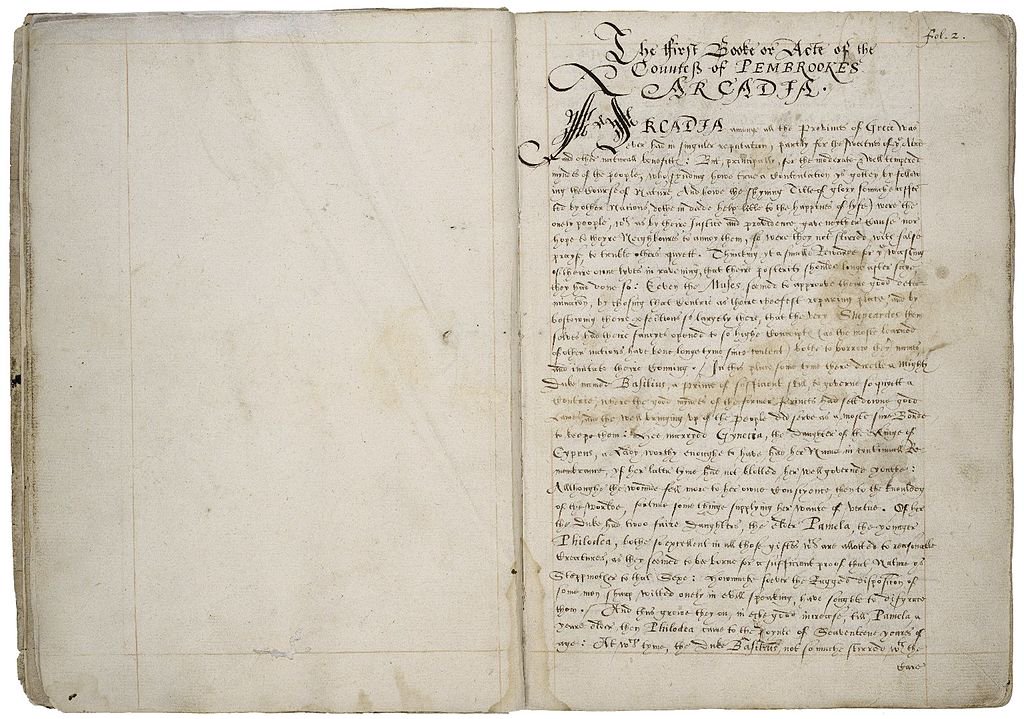 fol. 2.
The first Booke or Acte of the
Countess of PEMBROOKES
ARCADIA.
ARCADIA amonge all the Provinces of Grece was
ever had in singuler reputation, partly for the Sweetnes of ye Aire
and other naturall benefittes: But, principally, for the moderate & well tempered
myndes of the people, who, fynding howe true a Contentation ys gotten by follow-
ing the Course of Nature, And howe the shyning Title of glory somuche affec-
ted by other Nations, dothe in deede help litle to the happines of lyfe) were the
onely people, wch as by theire Justice and providence gave neither Cause nor
hope to theyre Neighboures to annoy them, so were they not stirred with false
prayse, to truble others quyett. Thincking yt a smalle Rewarde for ye wasting
of theire owne lyves in ravening, that theire posterity shoulde longe after saye
they had done so: Eeven the Muses seemed to approove theire good deter-
minacion, by chosing that Contrie as theire cheefest repairing place, and by
bestowing theire perfections so largely there, that the very Shepeardes them
selves had theire fancyes opened to so highe Conceiptes (as the moste learned
of other nations have bene longe tyme since content) bothe to borrow theyr names,
and imitate theire Conning. / In this place some tyme there dwelte a mighty
Duke named Basilius, a Prince of sufficient skill, to governe so quyett a
Contrie, where the good myndes of the former Princes had sett downe good
Lawes, and the well bringing up of the People did serve as a moste sure Bonde
to keepe them: Hee marryed Gynecia, the Daughter of the Kinge of
Cyprus, a Lady worthy enoughe to have had her Name in contynuall Re-
membraunce, yf her latter tyme had not blotted her well governed youthe:
Allthoughe the wounde fell more to her owne Conscyence then to the knowledg
of the worlde, fortune some thinge supplying her wante of vertue. Of her
the Duke had twoo faire Daughters, the elder Pamela, the younger
Philoclea, bothe so excellent in all those giftes wch are allotted to reasonable
Creatures, as they seemed to bee borne for a sufficient proof that Nature ys no
Steppmother to that Sexe: howmuche soever the Rugged disposicion of
some men sharp witted onely in evill speaking, have soughte to disgrace
them. / And thus grewe they on, in eche good increase, till Pamela a
yeare older then Philoclea came to the poynte of Seaventeene yeares of
age: At wch tyme, the Duke Basilius not so muche stirred wth the
Care